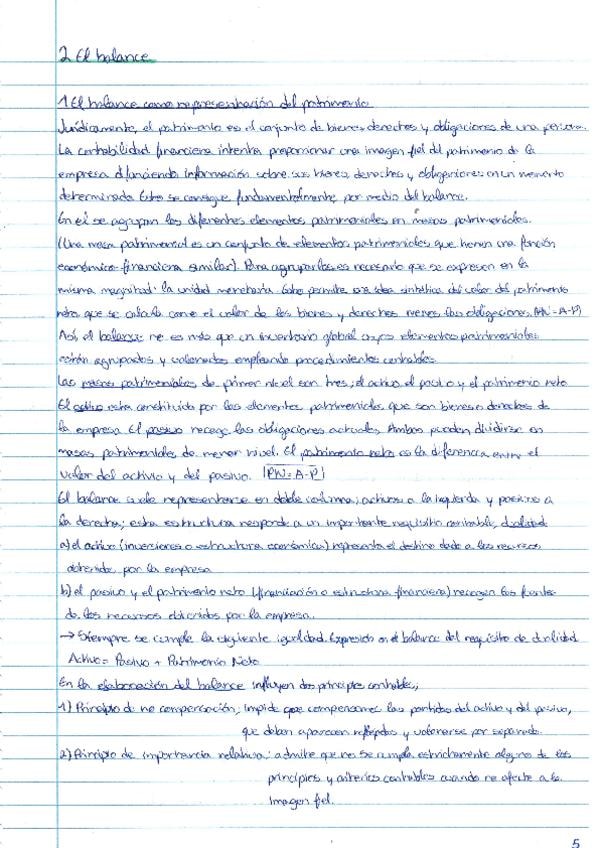 2 El balance
1 El balance como representación del patrimonio
Jurídicamente, el patrimonio es el conjunto de bienes derechos y obligaciones de una persona.
La contabilidad financiera intenta proporcionar una imagen fiel del patrimonio de la
empresa difunciendo información sobre sus bienes, derechos y obligaciones en un momento
determinado. Esto se consigue fundamentalmente por medio del balance.
En él se agrupan los diferentes elementos patrimoniales en masas patrimoniales.
(Una masa patrimonial es un conjunto de elementos patrimoniales que tienen una función
económico-financiera similar). Para agruparlos es necesario que se expresen en la
misma magnitud: la unidad monetaria. Esto permite una idea sintética del valor del patrimonio
neto que se calcula como el valor de los bienes y derechos menos las obligaciones. (PN=A-P)
Así, el balance no es más que un inventario global cuyos elementos patrimoniales
están agrupados y valorados empleando procedimientos contables.
Las masas patrimoniales de primer nivel son tres; el activo, el pasivo y el patrimonio neto
El activo esta constituido por los elementos patrimoniales que son bienes o derechos de
la empresa. El pasivo recoge las obligaciones actuales. Ambos pueden dividirse en
masas patrimoniales de menor nivel. El patrimonio neto es la diferencia entre el
valor del activo y del pasivo. |PN=A-P|
El balance suele representarse en doble columna; activos a la izquierda y pasivo a
la derecha; esta estructura responde a un importante requisito contable, dualidad
a) el activo (inversiones o estructura económica) representa el destino dado a los recursos
obtenidos por la empresa
b) el pasivo y el patrimonio neto (financiación o estructura financiera) recogen las fuentes
de los recursos obtenidos por la empresa.
→ Siempre se cumple la siguiente igualdad. Expresión en el balance del requisito de dualidad
Activo = Pasivo + Patrimonio Neto
En la elaboración del balance influyen dos principios contables;
1) Principio de no compensación; impide que compensemos las partidas del activo y del pasivo,
que deben aparecer reflejados y valorarse por separado.
2) Principio de importancia relativa: admite que no se cumpla estrictamente alguno de los
principios y criterios contables cuando no afecte a la
imagen fiel.
5